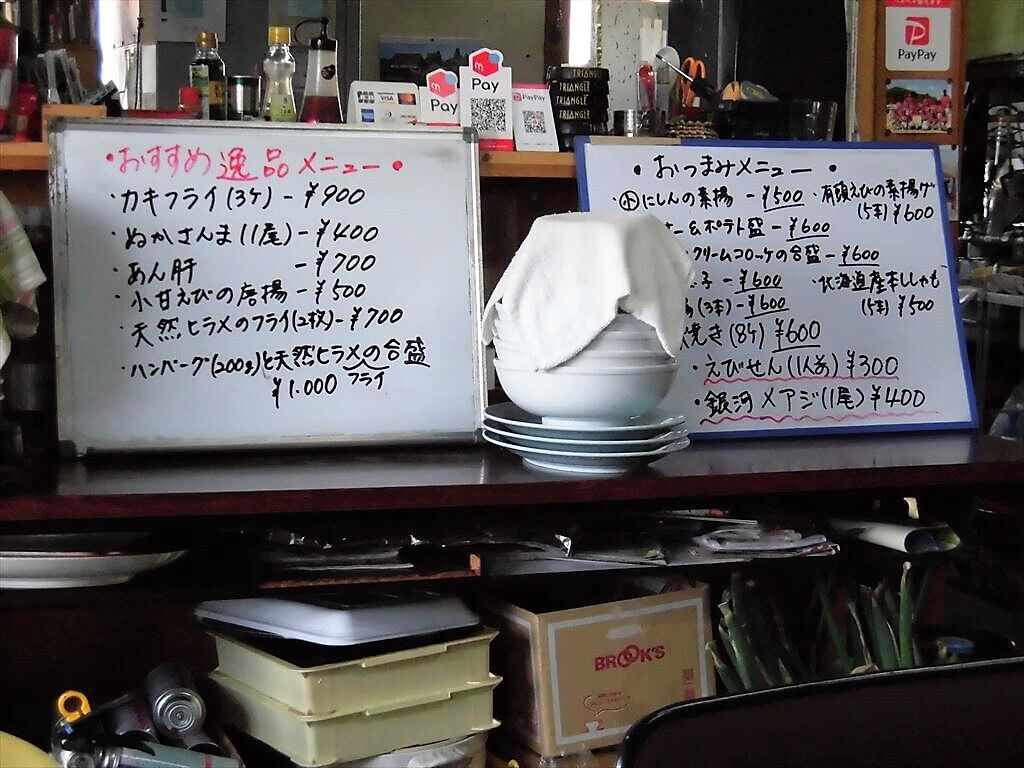 ・おすすめ逸品メニュー・
・カキフライ(3ケ)-¥900
・ぬかさんま(1尾)-¥400
・あん肝 -¥700
・小甘えびの唐揚-¥500
・天然ヒラメのフライ(2枚)-¥700
・ハンバーグ(200g)と天然ヒラメの合盛
フライ
¥1.000
・おつまみメニュー・
・小にしんの素揚-¥500
・有頭えびの素揚げ
(5本)¥600
ー&ポテト盛-¥600
クリームコロッケの合盛-¥600
子-¥600
・北海道産本ししゃも-
(3本)-¥600
(5本)¥500
焼き(8ケ)¥600
・えびせん(1人前)¥300
・銀河メアジ(1尾)¥400
JCB
VISA
Pay
Pay
PayPay
PayPay
TRIANGLE
TRIANGLE
TRIANGLE
TRIANGLE
BROOK'S